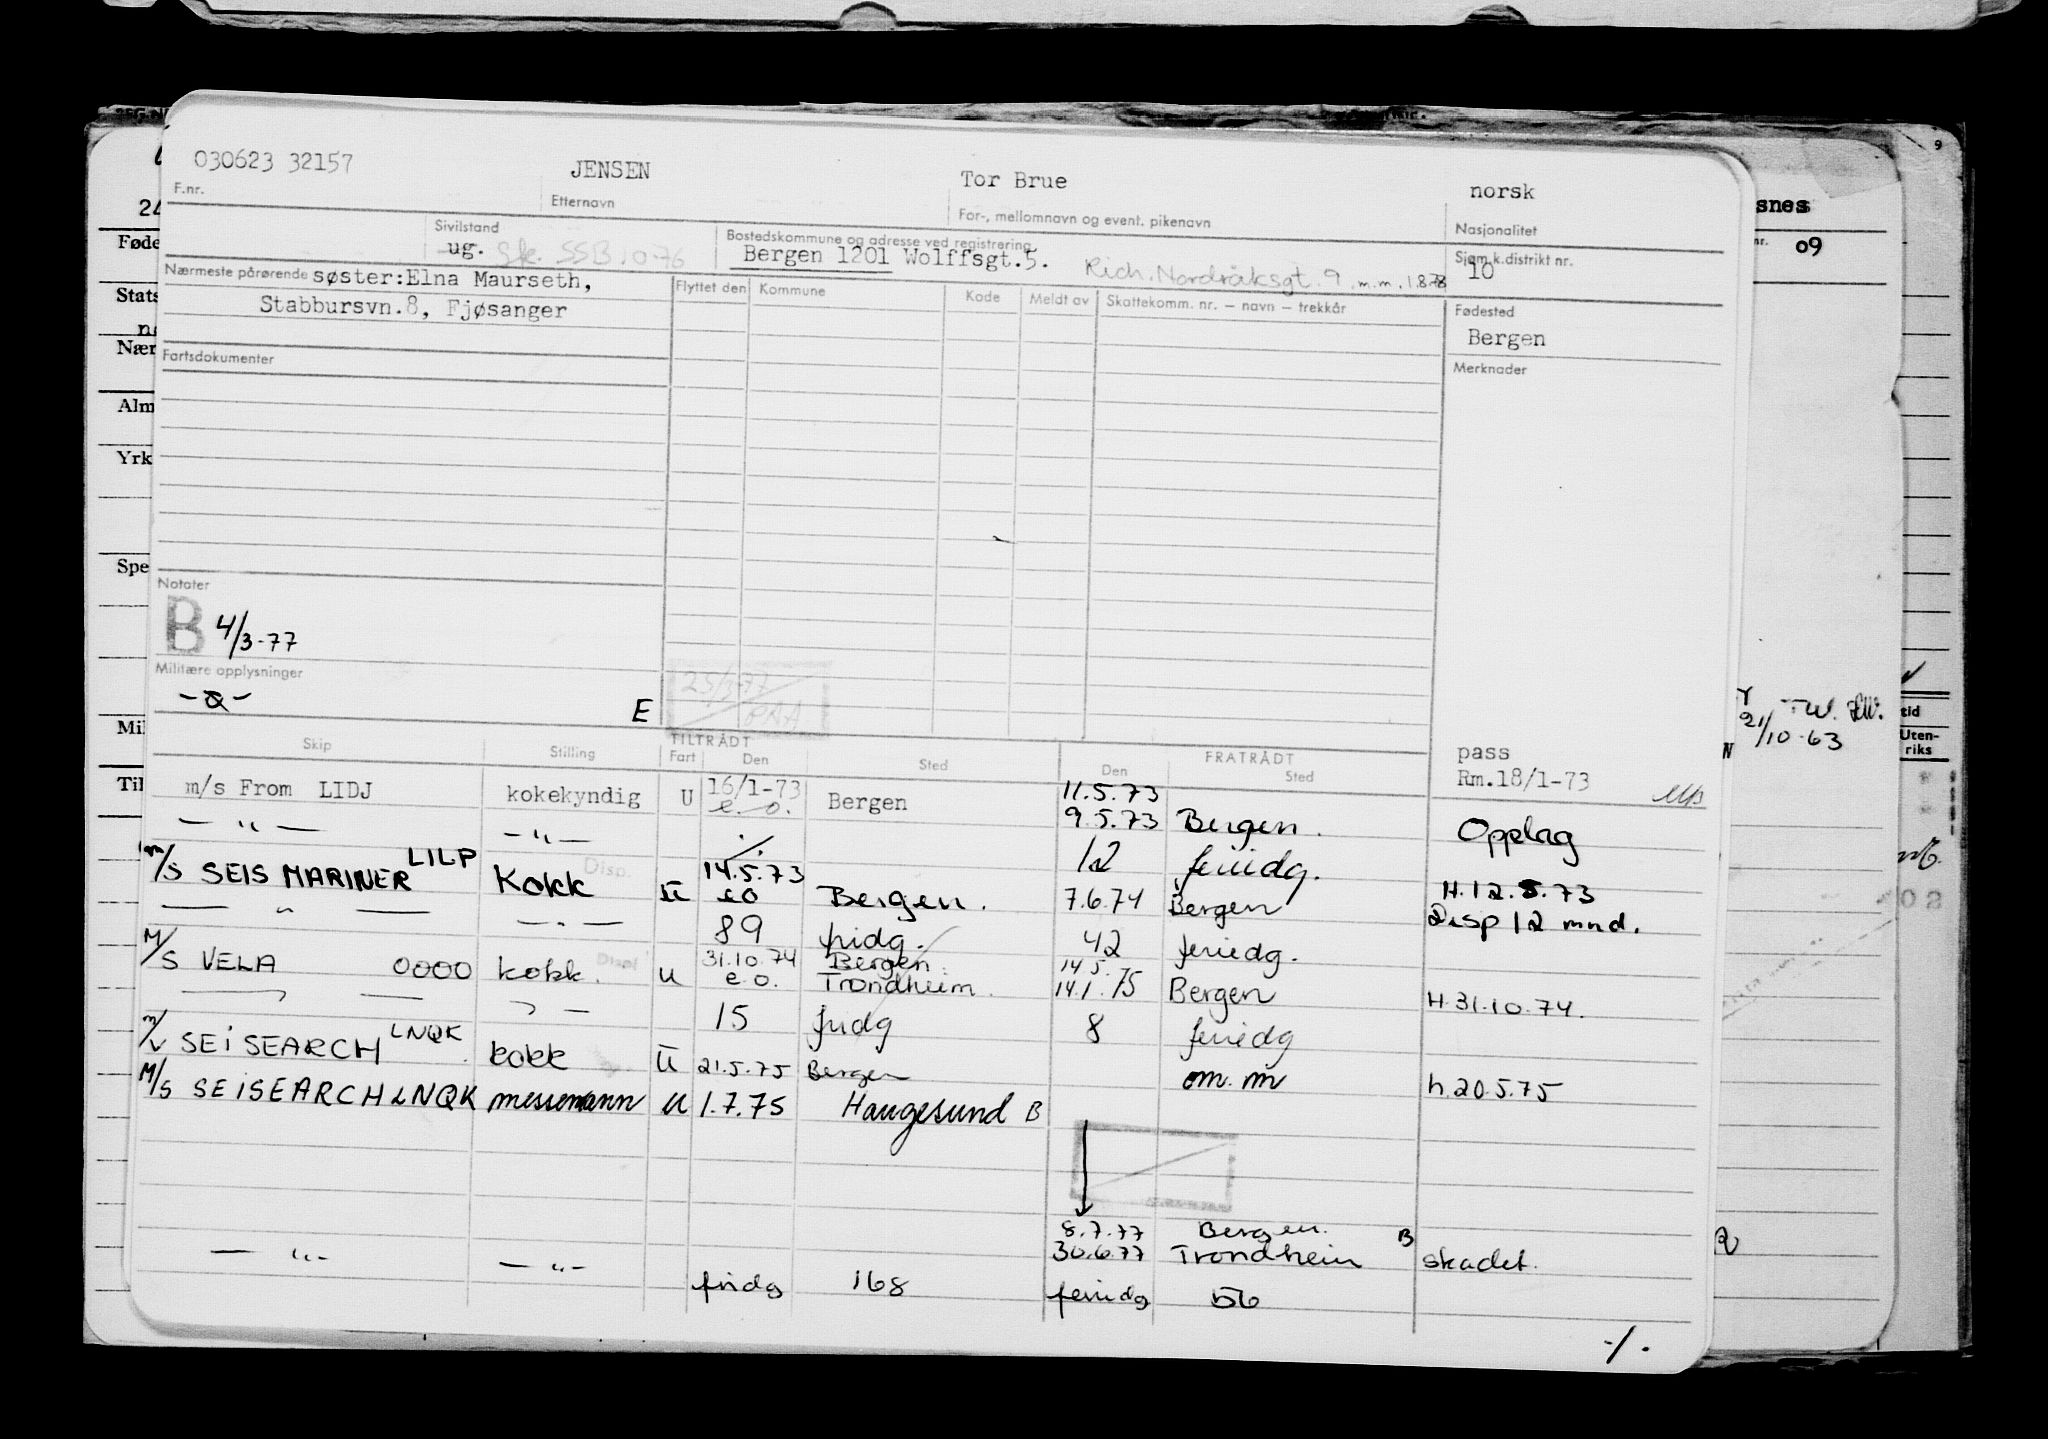 030623 32157 JENSEN Tor Brue norsk
F.nr. Etternavn For-, mellomnavn og event. pikenavn Nasjonalitet
Sivilstand Bostedskommune og adresse ved registrering Sjøm.k.distrikt nr.
ug. Sk. SSB 10-76 Bergen 1201 Wolffsgt.5. Rich. Nordråksgt. 9 m.m. 1.8.78 10
Nærmeste pårørende søster: Elna Maurseth, Flyttet den Kommune Kode Meldt av Skattekomm. nr. – navn – trekkår Fødested
Stabbursvn.8, Fjøsanger Bergen
Fartsdokumenter Merknader
Notater
B 4/3-77
Militære opplysninger 25/3-77
E
TILTRÅDT FRATRÅDT pass
Skip Stilling Fart Den Sted Den Sted Rm.18/1-73
m/s From LIDJ kokekyndig U 16/1-73 Bergen 11.5.73
— " — — " — e.o. 9.5.73 Bergen. Opplag
./. 12 feriedg.
m/s SEIS MARINER LILP Kokk Disp. U 14.5.73 Bergen. 7.6.74 Bergen H.12.5.73
— " — — " — eo Disp 12 mnd.
89 fridg. 42 feriedg.
M/S VELA 0000 kokk. Displ U 31.10.74 Bergen. 14.5.75
e.o. Trondheim. 14.1.75 Bergen H 31.10.74.
15 fridg 8 feriedg
m/v SEISEARCH LNQK kokk U 21.5.75 Bergen om. m h.20.5.75
M/S SEISEARCH LNQK messemann U 1.7.75 Haugesund B
8.7.77 Bergen. B
— " — — " — 30.6.77 Trondheim skadet.
fridg 168 feriedg 56
-/.
24
Føde
Stats
Nær
Alm
Yrk
Spe
Mil
Til
snes
nr. 09
9
21/10-63
tid
Uten-
riks
02